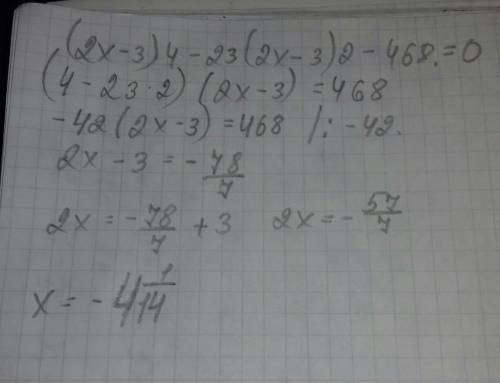 (2x-3)4-23(2x-3)2-468.=0
(4-23·2)(2x-3)=468
-42(2x-3)=468 /: -42.
2x-3=-78/7
2x=-78/7+3 2x=-57/7
x=-4 1/14